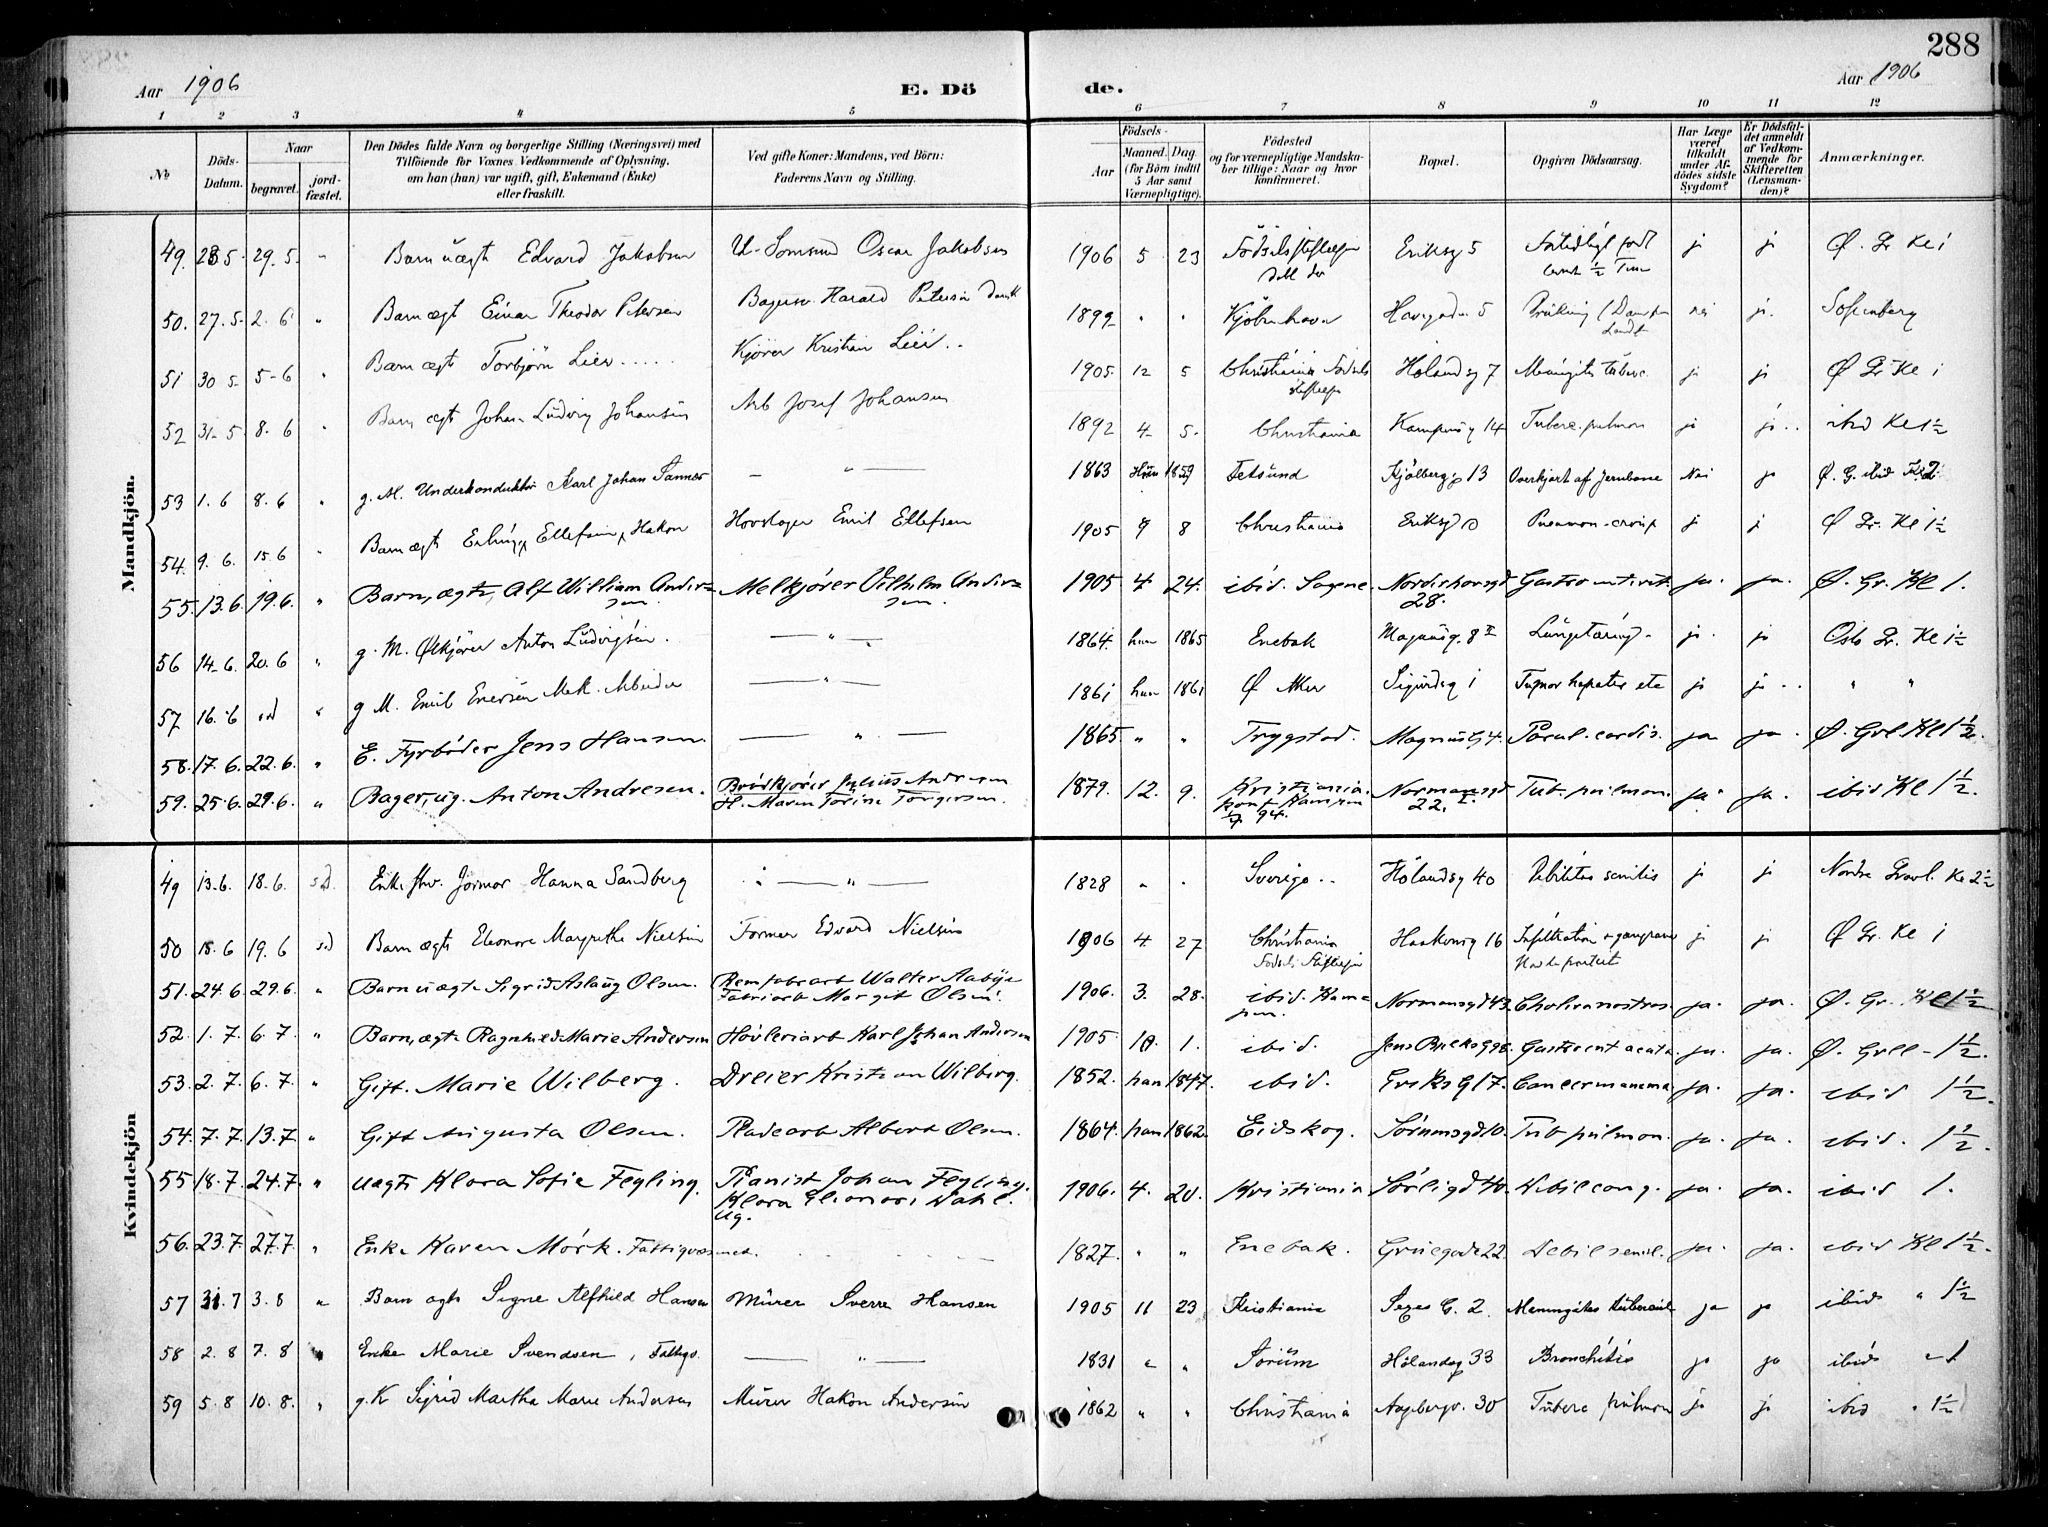 288
Aar 1906
E. Dö
de.
Aar 1906
1 2 3 4 5 6 7 8 9 10 11 12
No
Döds-Datum.
Naar
begravet.
jordfæstet.
Den Dödes fulde Navn og borgerlige Stilling (Næringsvei) med
Tilföiende for Voxnes Vedkommende af Oplysning,
om han (hun) var ugift, gift, Enkemand (Enke)
eller fraskilt.
Ved gifte Koner: Mandens, ved Börn:
Faderens Navn og Stilling.
Födsels-
Aar
Maaned. Dag.
(for Börn indtil
5 Aar samt
Værnepligtige).
Födested
og for værnepligtige Mandskaber tillige: Naar og hvor
konfirmeret.
Bopæl.
Opgiven Dödsaarsag.
Har Læge
været
tilkaldt
under Afdödes sidste
Sygdom?
Er Dödsfaldet anmeldt
af Vedkommende for
Skifteretten
(Lensmanden)?
Anmærkninger.
Mandkjön.
49. 28 5. 29. 5. " Barn uægt Edvard Jakobsen Oscar Jakobsen 1906 5 23 Eriksg 5 ja ja Ø. Gr Kl 1
50. 27. 5. 2. 6 " Barn ægt Einar Theodor Petersen Harald Petersen 1899 " " Kjöbenhavn 5 nei ja. Sofienberg
51 30 5. 5-6 " Barn ægt Torbjörn Lier Kjörer Kristian Lier 1905. 12 5 Christiania Födsels Hölandsg 7 Meningitis tuberc. ja ja Ø Gr Kl 1
52 31. 5. 8. 6 " Barn ægt Johan Ludvig Johansen Arb Josef Johansen 1892 4 5. Christiania Kampensg 14 Tuberc. pulmon ja ja ibid Kl 1½
53 1. 6 8. 6 " g. M. Underkonduktör Karl Johan Sannes — " — 1863 1859 Fetsund Kjölbergg 13 Overkjørt af Jernbane Nei ja Ø. G. ibid Kl 2
54. 9. 6. 15. 6 " Barn ægt Erling Ellefsen, Hakon Hovslager Emil Ellefsen 1905 9 8 Christiania Eriksg 10 Pneumon-croup j j Ø Gr. Kl 1½
55. 13. 6. 19. 6. " Barn, ægte, Alf William Andersen. Melkjører Vilhelm Andersen. 1905 4 24. ibid. Sagene. 28. Gastro enterit. ja. ja. Ø. Gr. Kl 1.
56 14. 6. 20. 6 " g. M. Ølkjörer Anton Ludvigsen. — " — 1864. hun 1865 Enebak Magnusg. 8 I Lungetæring. ja. ja Oslo Gr. Kl 1½
57 16. 6 " g M. Emil Enersen Mek. Arbeider — " — 1861 hun 1861 Ø Aker Sigurdsg 1 Tumor hepatis etc ja ja " "
58. 17. 6. 22. 6. " E. Fyrböder Jens Hansen. — " — 1865 " " Trygstad. Magnusg 4. Paral. cordis. ja ja. Ø. Grl Kl 1½.
59. 25. 6. 29. 6. " Bager, ug. Anton Andresen. Brödkjörer Julius Andresen H. Maren Torine Torgersen. 1879. 12. 9. Kristiania. konf. Kampen 94. Normansgd 22. I. Tub. pulmon. ja ja. ibid Kl 1½.
Kvindekjön
49 13. 6. 18. 6. Enke fhv. Jormor Hanna Sandberg — " — 1828 " " Sverige Hölandsg 40 Debilitas senilis ja ja Nordre Gravl. Kl 2½
50 15. 6 19. 6 Barn ægte Eleonore Margrethe Nielsen Former Edvard Nielsen 1906 4 27 Christiania Haakonsg 16 Infiltration ja ja Ø Gr. Kl 1
51. 24. 6. 29. 6. " Barn uægte Sigrid Aslaug Olsen. Walter Aabye Fabriarb Margit Olsen. 1906. 3. 28. ibid. Kampen. Normansgd 43. Cholera nostras. ja. ja. Ø. Gr. Kl 1½
52. 1. 7. 6. 7. " Barn, ægte Ragnhild Marie Andersen Høvleriarb Karl Johan Andersen 1905. 10. 1. ibid. Jens Bjelkesg 98. Gastroent acuta. ja. ja. Ø. Grl - 1½.
53. 2. 7. 6. 7. " Gift. Marie Wilberg. Dreier Kristian Wilberg. 1852. han 1847. ibid. Eriksg 17. Cancer mamma ja. ja. ibid 1½.
54. 7. 7. 13. 7. " Gift Augusta Olsen. Pladearb Albert Olsen. 1864. han 1862. Eidskog. Sørumsgd 10. Tub pulmon. ja. ja. ibid. 1½.
55 18. 7. 24. 7. " uægte Klara Sofie Fegling. Pianist Johan Fegling. Klara Elionore Dahl. ug. 1906. 4. 20. Kristiania Sørligd 40. Debil cong. ja. ja. ibid 1.
56. 23. 7. 27. 7. " Enke Karen Mörk. Fattigvæsenet. 1827. " " Enebak. Gruegade 22. Debil senil. ja. ja. ibid Kl 1½.
57 31. 7 3. 8 " Barn ægte Signe Alfhild Hansen Murer Sverre Hansen 1905 11 23 Kristiania Sexes G. 2 Meningites tuberculi ja ja ibid " 1½
58 2. 8 7. 8 " Enke Marie Svendsen, Fattigv. — " — 1831 " " Sörum Hölandsg 33 Bronchitis ja ja ibid " 1
59 5. 8 10. 8. " g. K Sigrid Martha Marie Andersen Murer Hakon Andersen 1862 " " Christiania Aagebergv. 30 Tuberc pulmon ja ja ibid " 1½